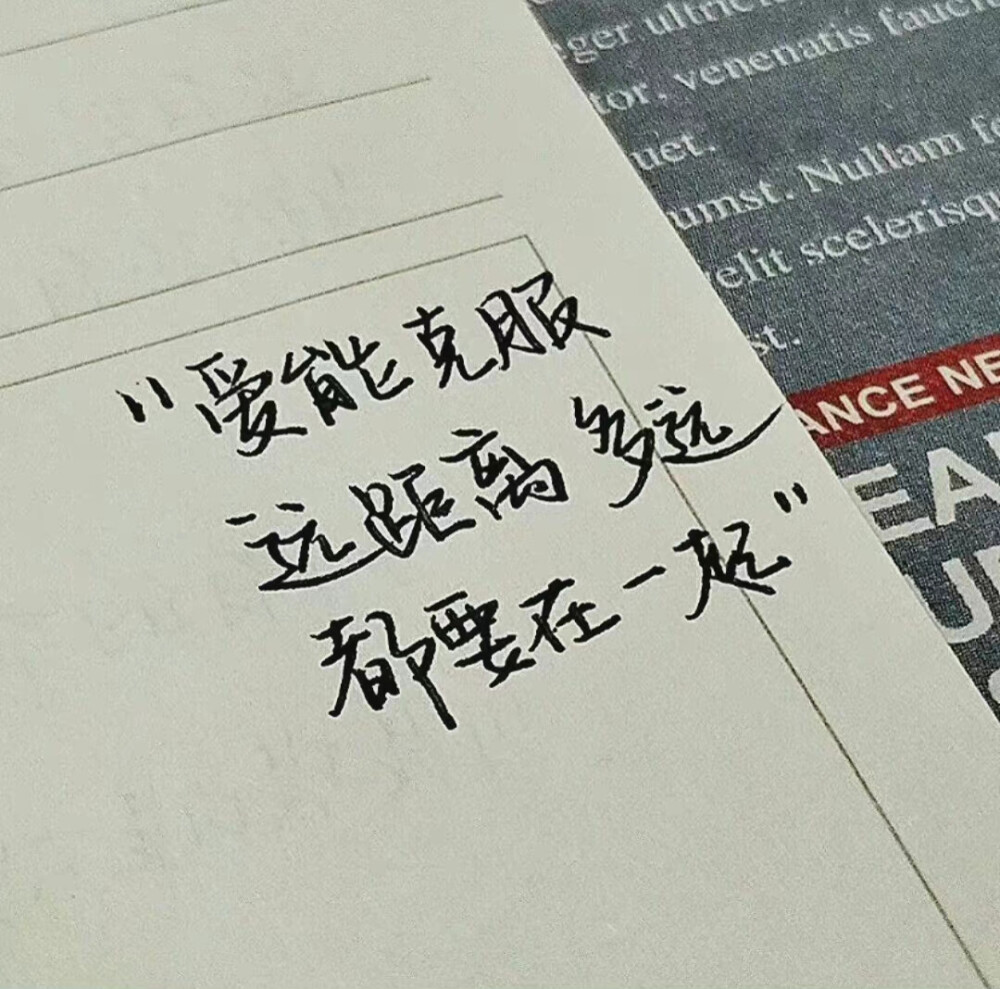 "爱能克服
远距离多远
都要在一起"
ger ultric
tor, venenatis fauci
uet.
umst. Nullam fe
elit scelerisqu
st.
ANCE NE
EA